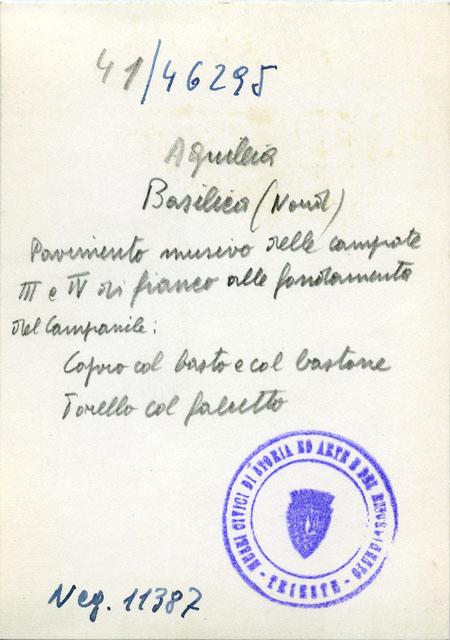 41/46295
Aquileia
Basilica (Nord)
Pavimento musivo delle campate
III e IV di fianco alle fondamenta
del Campanile:
Capro col basto e col bastone
Torello col falcetto
MUSEI CIVICI DI STORIA ED ARTE E DEL RISORGIMENTO
- TRIESTE -
Neg. 11387